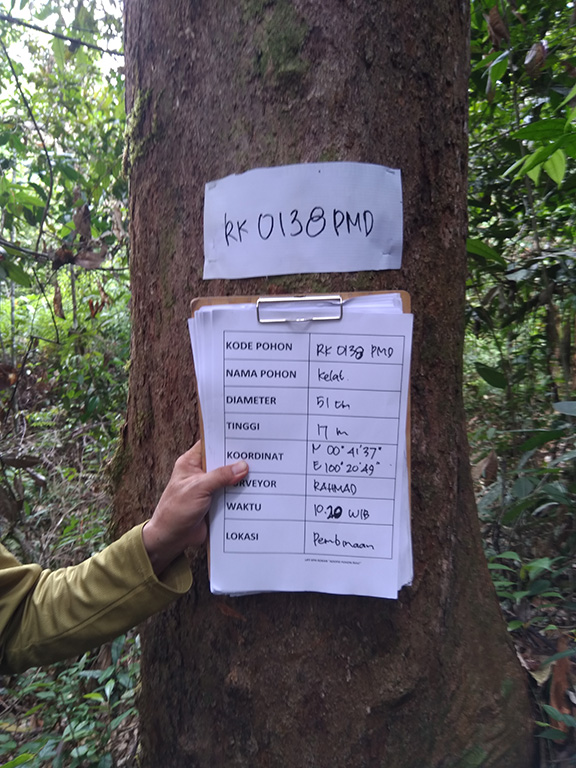 RK 0138 PMD
KODE POHON RK 0138 PMD
NAMA POHON Kelat
DIAMETER 51 cm
TINGGI 17 m
KOORDINAT N 00° 41' 37"
E 100° 20' 49"
RVEYOR RAHMAD
WAKTU 10.20 WIB
LOKASI Pembinaan